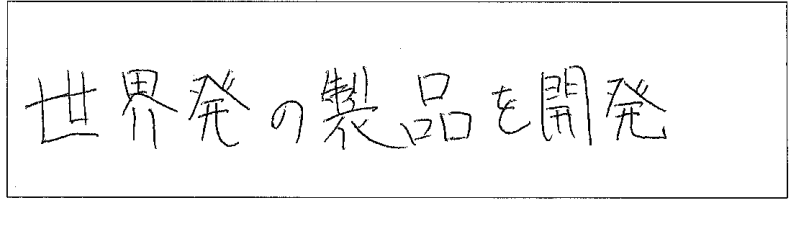 世界発の製品を開発